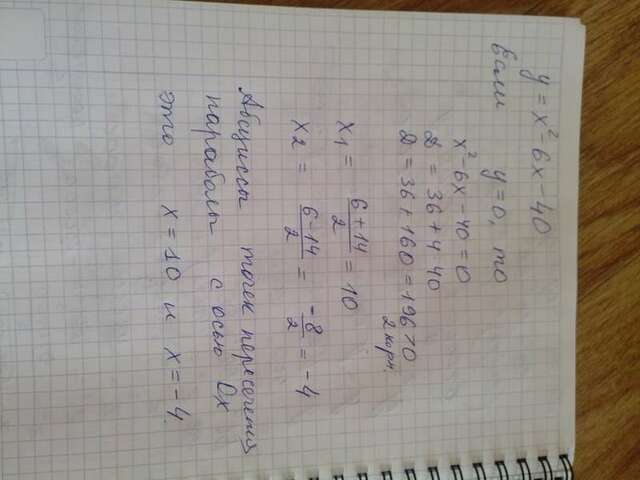 y = x² - 6x - 40
Если y = 0, то
x² - 6x - 40 = 0
D = 36 + 4·40
D = 36 + 160 = 196 > 0
2 корн.
x1 = (6+14)/2 = 10
x2 = (6-14)/2 = -8/2 = -4
Абсциссы точек пересечения
параболы с осью Ox
это x = 10 и x = -4.